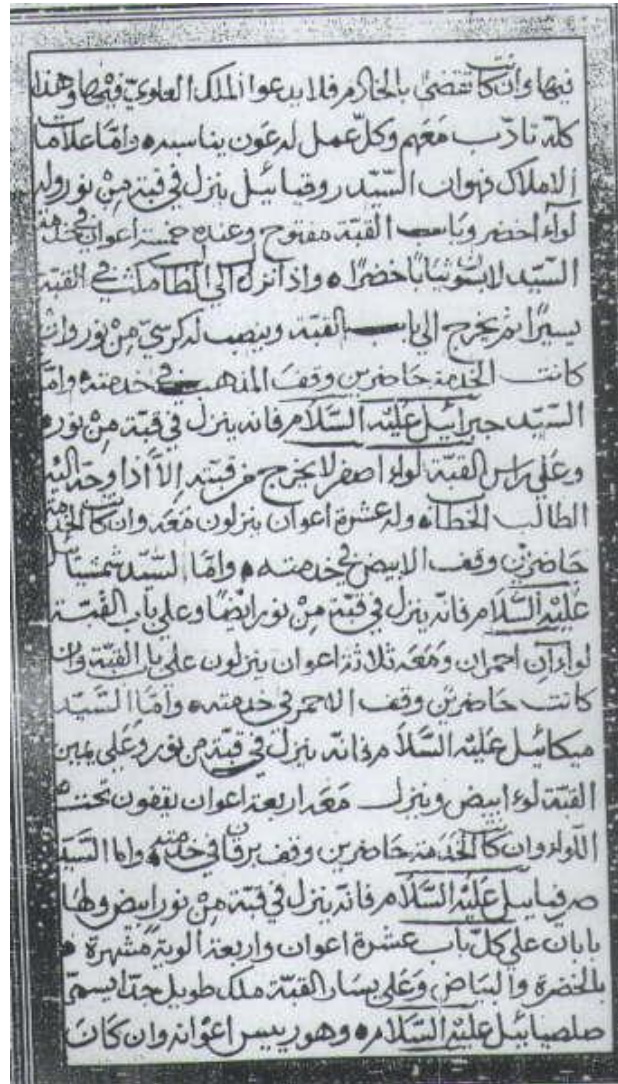 فيها وان كانت تقضى بالخادم فلا يدعوا الملك العلوي فيها وهذا
كله تادب معهم وكل عمل له عون يناسبه واما علامات
الاملاك فهوان السيد روقيائيل ينزل في قبة من نور وله
لواء اخضر وباب القبة مفتوح وعنده خمسة اعوان في خدمة
السيد لابسون ثيابا خضرا واذا نزل الي الطالب مكث في القبة
يسيرا ثم يخرج الي باب القبة وينصب له كرسي من نور وان
كانت الخدمة حاضرين وقف المذهب في خدمته واما
السيد جبرائيل عليه السلام فانه ينزل في قبة من نور
وعلي راس القبة لواء اصفر لا يخرج من قبته الا اذا وجد اليه
الطالب الخطاب وله عشرة اعوان ينزلون معه وان كانت الخدمة
حاضرين وقف الابيض في خدمته واما السيد شمسيائيل
عليه السلام فانه ينزل في قبة من نور ايضا وعلي باب القبة
لواءان احمران ومعه ثلاثة اعوان ينزلون علي باب القبة وان
كانت حاضرين وقف الاحمر في خدمته واما السيد
ميكائيل عليه السلام فانه ينزل في قبة من نور وعلي يمين
القبة لوء ابيض وينزل معه اربعة اعوان يقفون تحت
اللواء وان كانت الخدمة حاضرين وقف برقان في خدمته واما السيد
صرفيائيل عليه السلام فانه ينزل في قبة من نور ابيض ولها
بابان علي كل باب عشرة اعوان واربعة الوية مشهرة
بالخضرة والبياض وعلي يسار القبة ملك طويل جدا يسمى
صلصيائيل عليه السلام وهو رييس اعوانه وان كان